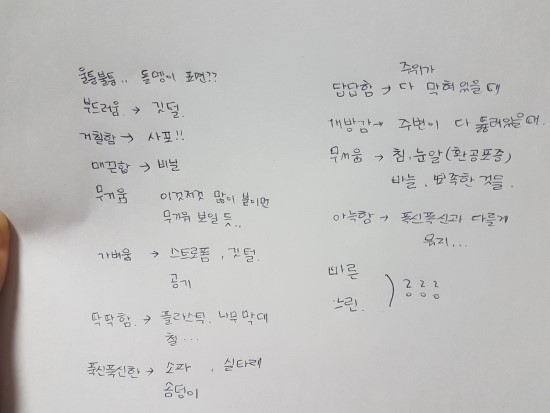 울퉁불퉁.. 돌멩이 표면??
부드러움 → 깃털.
거칠함 → 사포!!
매끈함 → 비닐
무거움 이것저것 많이 붙이면
무거워 보일 듯..
가벼움 → 스트로폼, 깃털.
공기
딱딱함. → 플라스틱. 나무막대
철...
폭신폭신한 → 소파, 실타래
솜덩이
주위가
답답함 → 다 막혀있을때
개방감 → 주변이 다 뚫려있을때.
무서움 → 침, 눈알(환공포증)
바늘, 뾰족한 것들.
아늑함 → 폭신폭신과 다를게
뭐지...
빠른
느린.